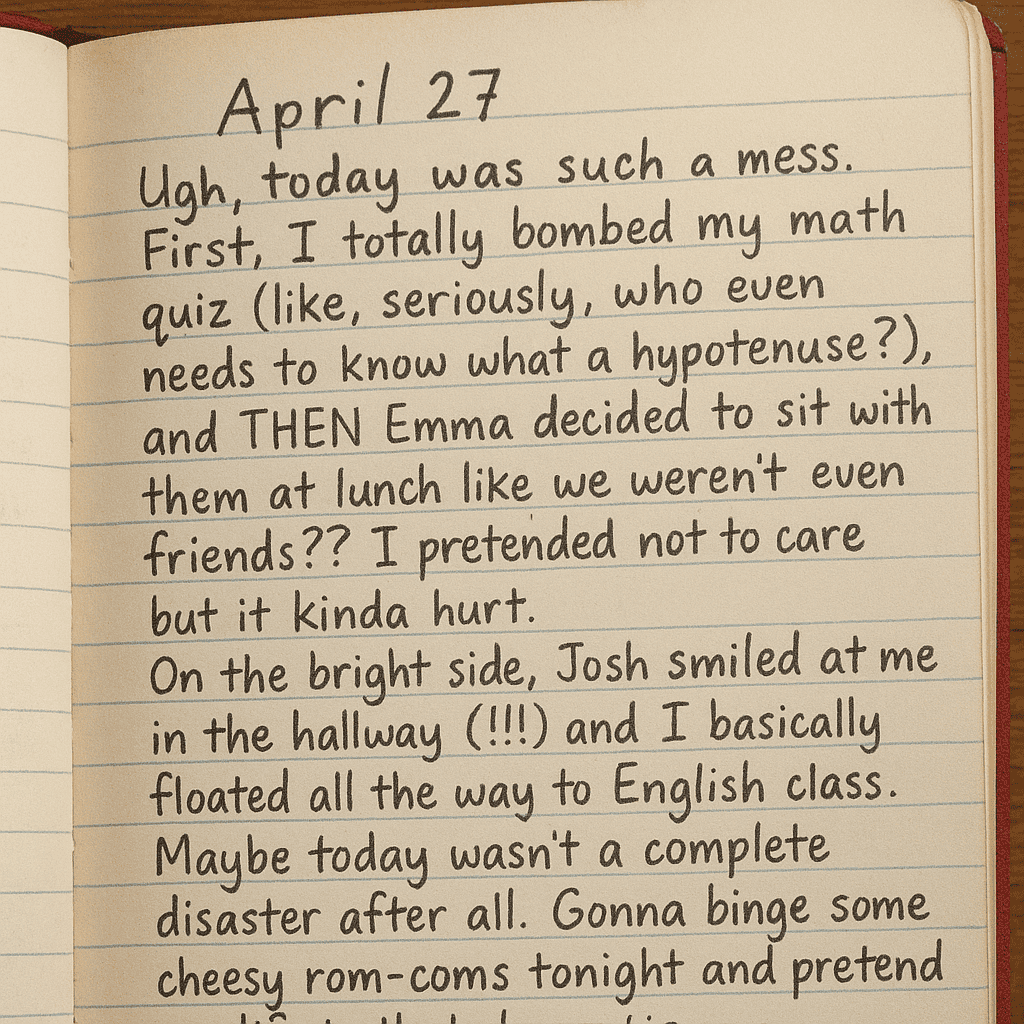 April 27
Ugh, today was such a mess.
First, I totally bombed my math
quiz (like, seriously, who even
needs to know what a hypotenuse?),
and THEN Emma decided to sit with
them at lunch like we weren't even
friends?? I pretended not to care
but it kinda hurt.
On the bright side, Josh smiled at me
in the hallway (!!!) and I basically
floated all the way to English class.
Maybe today wasn't a complete
disaster after all. Gonna binge some
cheesy rom-coms tonight and pretend